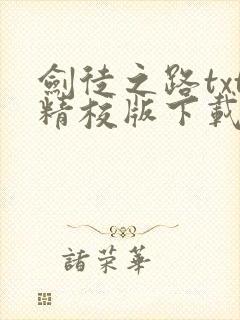 劍徒之路txt
精校版下載
諸荣華